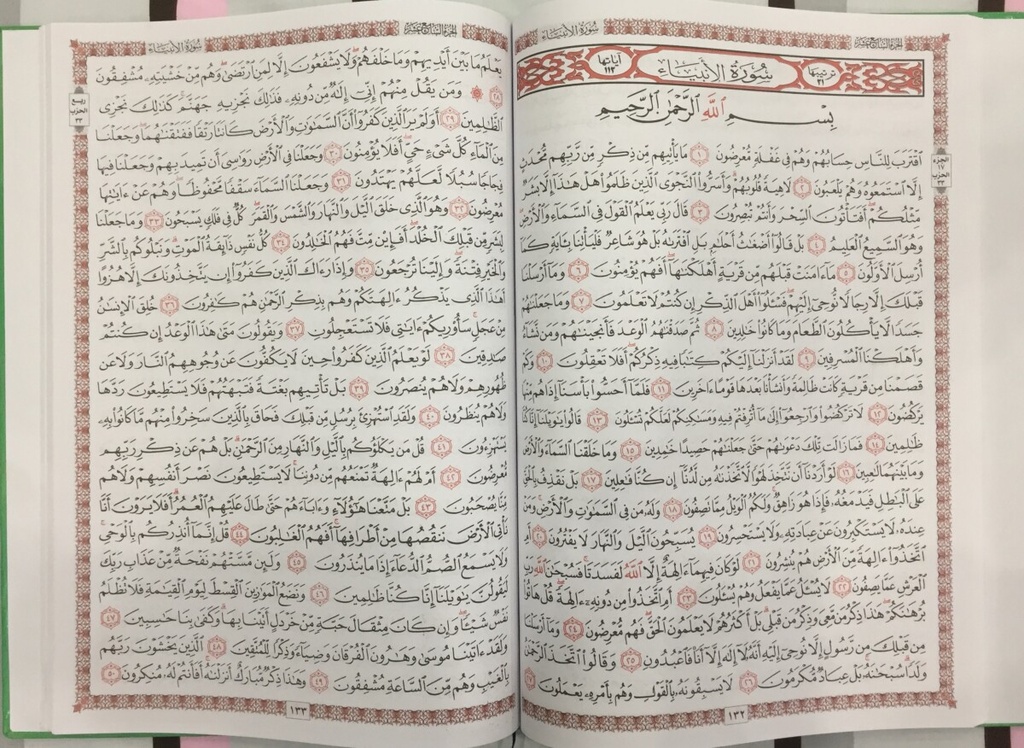 الجزء السابع عشر
سُورَةُ الأَنبِيَاءِ
ترتيبها ٢١
سُورَةُ الأَنبِيَاءِ
آياتها ١١٢
بِسْمِ اللَّهِ الرَّحْمَٰنِ الرَّحِيمِ
الجزء ١٧ الحزب ٣٣
اقْتَرَبَ لِلنَّاسِ حِسَابُهُمْ وَهُمْ فِي غَفْلَةٍ مُعْرِضُونَ ١ مَا يَأْتِيهِم مِّن ذِكْرٍ مِّن رَّبِّهِم مُّحْدَثٍ
إِلَّا اسْتَمَعُوهُ وَهُمْ يَلْعَبُونَ ٢ لَاهِيَةً قُلُوبُهُمْ وَأَسَرُّوا النَّجْوَى الَّذِينَ ظَلَمُوا هَلْ هَٰذَا إِلَّا بَشَرٌ
مِّثْلُكُمْ أَفَتَأْتُونَ السِّحْرَ وَأَنتُمْ تُبْصِرُونَ ٣ قَالَ رَبِّي يَعْلَمُ الْقَوْلَ فِي السَّمَاءِ وَالْأَرْضِ
وَهُوَ السَّمِيعُ الْعَلِيمُ ٤ بَلْ قَالُوا أَضْغَٰثُ أَحْلَٰمٍ بَلِ افْتَرَىٰهُ بَلْ هُوَ شَاعِرٌ فَلْيَأْتِنَا بِـَٔايَةٍ كَمَا
أُرْسِلَ الْأَوَّلُونَ ٥ مَا ءَامَنَتْ قَبْلَهُم مِّن قَرْيَةٍ أَهْلَكْنَٰهَا أَفَهُمْ يُؤْمِنُونَ ٦ وَمَا أَرْسَلْنَا
قَبْلَكَ إِلَّا رِجَالًا نُّوحِي إِلَيْهِمْ فَسْـَٔلُوا أَهْلَ الذِّكْرِ إِن كُنتُمْ لَا تَعْلَمُونَ ٧ وَمَا جَعَلْنَٰهُمْ
جَسَدًا لَّا يَأْكُلُونَ الطَّعَامَ وَمَا كَانُوا خَٰلِدِينَ ٨ ثُمَّ صَدَقْنَٰهُمُ الْوَعْدَ فَأَنجَيْنَٰهُمْ وَمَن نَّشَاءُ
وَأَهْلَكْنَا الْمُسْرِفِينَ ٩ لَقَدْ أَنزَلْنَا إِلَيْكُمْ كِتَٰبًا فِيهِ ذِكْرُكُمْ أَفَلَا تَعْقِلُونَ ١٠ وَكَمْ
قَصَمْنَا مِن قَرْيَةٍ كَانَتْ ظَالِمَةً وَأَنشَأْنَا بَعْدَهَا قَوْمًا ءَاخَرِينَ ١١ فَلَمَّا أَحَسُّوا بَأْسَنَا إِذَا هُم مِّنْهَا
يَرْكُضُونَ ١٢ لَا تَرْكُضُوا وَارْجِعُوا إِلَىٰ مَا أُتْرِفْتُمْ فِيهِ وَمَسَٰكِنِكُمْ لَعَلَّكُمْ تُسْـَٔلُونَ ١٣ قَالُوا يَٰوَيْلَنَا إِنَّا كُنَّا
ظَٰلِمِينَ ١٤ فَمَا زَالَت تِّلْكَ دَعْوَىٰهُمْ حَتَّىٰ جَعَلْنَٰهُمْ حَصِيدًا خَٰمِدِينَ ١٥ وَمَا خَلَقْنَا السَّمَاءَ وَالْأَرْضَ
وَمَا بَيْنَهُمَا لَٰعِبِينَ ١٦ لَوْ أَرَدْنَا أَن نَّتَّخِذَ لَهْوًا لَّاتَّخَذْنَٰهُ مِن لَّدُنَّا إِن كُنَّا فَٰعِلِينَ ١٧ بَلْ نَقْذِفُ بِالْحَقِّ
عَلَى الْبَٰطِلِ فَيَدْمَغُهُ فَإِذَا هُوَ زَاهِقٌ وَلَكُمُ الْوَيْلُ مِمَّا تَصِفُونَ ١٨ وَلَهُ مَن فِي السَّمَٰوَٰتِ وَالْأَرْضِ وَمَنْ
عِندَهُ لَا يَسْتَكْبِرُونَ عَنْ عِبَادَتِهِ وَلَا يَسْتَحْسِرُونَ ١٩ يُسَبِّحُونَ الَّيْلَ وَالنَّهَارَ لَا يَفْتُرُونَ ٢٠ أَمِ
اتَّخَذُوا ءَالِهَةً مِّنَ الْأَرْضِ هُمْ يُنشِرُونَ ٢١ لَوْ كَانَ فِيهِمَا ءَالِهَةٌ إِلَّا اللَّهُ لَفَسَدَتَا فَسُبْحَٰنَ اللَّهِ رَبِّ
الْعَرْشِ عَمَّا يَصِفُونَ ٢٢ لَا يُسْـَٔلُ عَمَّا يَفْعَلُ وَهُمْ يُسْـَٔلُونَ ٢٣ أَمِ اتَّخَذُوا مِن دُونِهِ ءَالِهَةً قُلْ هَاتُوا
بُرْهَٰنَكُمْ هَٰذَا ذِكْرُ مَن مَّعِيَ وَذِكْرُ مَن قَبْلِي بَلْ أَكْثَرُهُمْ لَا يَعْلَمُونَ الْحَقَّ فَهُم مُّعْرِضُونَ ٢٤ وَمَا أَرْسَلْنَا
مِن قَبْلِكَ مِن رَّسُولٍ إِلَّا نُوحِي إِلَيْهِ أَنَّهُ لَا إِلَٰهَ إِلَّا أَنَا فَاعْبُدُونِ ٢٥ وَقَالُوا اتَّخَذَ الرَّحْمَٰنُ
وَلَدًا سُبْحَٰنَهُ بَلْ عِبَادٌ مُّكْرَمُونَ ٢٦ لَا يَسْبِقُونَهُ بِالْقَوْلِ وَهُم بِأَمْرِهِ يَعْمَلُونَ ٢٧
١٣٢
الجزء السابع عشر
سُورَةُ الأَنبِيَاءِ
ربع الحزب ٣٣
يَعْلَمُ مَا بَيْنَ أَيْدِيهِمْ وَمَا خَلْفَهُمْ وَلَا يَشْفَعُونَ إِلَّا لِمَنِ ارْتَضَىٰ وَهُم مِّنْ خَشْيَتِهِ مُشْفِقُونَ
٢٨ وَمَن يَقُلْ مِنْهُمْ إِنِّي إِلَٰهٌ مِّن دُونِهِ فَذَٰلِكَ نَجْزِيهِ جَهَنَّمَ كَذَٰلِكَ نَجْزِي
الظَّٰلِمِينَ ٢٩ أَوَلَمْ يَرَ الَّذِينَ كَفَرُوا أَنَّ السَّمَٰوَٰتِ وَالْأَرْضَ كَانَتَا رَتْقًا فَفَتَقْنَٰهُمَا وَجَعَلْنَا
مِنَ الْمَاءِ كُلَّ شَيْءٍ حَيٍّ أَفَلَا يُؤْمِنُونَ ٣٠ وَجَعَلْنَا فِي الْأَرْضِ رَوَٰسِيَ أَن تَمِيدَ بِهِمْ وَجَعَلْنَا فِيهَا
فِجَاجًا سُبُلًا لَّعَلَّهُمْ يَهْتَدُونَ ٣١ وَجَعَلْنَا السَّمَاءَ سَقْفًا مَّحْفُوظًا وَهُمْ عَنْ ءَايَٰتِهَا
مُعْرِضُونَ ٣٢ وَهُوَ الَّذِي خَلَقَ الَّيْلَ وَالنَّهَارَ وَالشَّمْسَ وَالْقَمَرَ كُلٌّ فِي فَلَكٍ يَسْبَحُونَ ٣٣ وَمَا جَعَلْنَا
لِبَشَرٍ مِّن قَبْلِكَ الْخُلْدَ أَفَإِي۟ن مِّتَّ فَهُمُ الْخَٰلِدُونَ ٣٤ كُلُّ نَفْسٍ ذَائِقَةُ الْمَوْتِ وَنَبْلُوكُم بِالشَّرِّ
وَالْخَيْرِ فِتْنَةً وَإِلَيْنَا تُرْجَعُونَ ٣٥ وَإِذَا رَءَاكَ الَّذِينَ كَفَرُوا إِن يَتَّخِذُونَكَ إِلَّا هُزُوًا
أَهَٰذَا الَّذِي يَذْكُرُ ءَالِهَتَكُمْ وَهُم بِذِكْرِ الرَّحْمَٰنِ هُمْ كَٰفِرُونَ ٣٦ خُلِقَ الْإِنسَٰنُ
مِنْ عَجَلٍ سَأُو۟رِيكُمْ ءَايَٰتِي فَلَا تَسْتَعْجِلُونِ ٣٧ وَيَقُولُونَ مَتَىٰ هَٰذَا الْوَعْدُ إِن كُنتُمْ
صَٰدِقِينَ ٣٨ لَوْ يَعْلَمُ الَّذِينَ كَفَرُوا حِينَ لَا يَكُفُّونَ عَن وُجُوهِهِمُ النَّارَ وَلَا عَن
ظُهُورِهِمْ وَلَا هُمْ يُنصَرُونَ ٣٩ بَلْ تَأْتِيهِم بَغْتَةً فَتَبْهَتُهُمْ فَلَا يَسْتَطِيعُونَ رَدَّهَا
وَلَا هُمْ يُنظَرُونَ ٤٠ وَلَقَدِ اسْتُهْزِئَ بِرُسُلٍ مِّن قَبْلِكَ فَحَاقَ بِالَّذِينَ سَخِرُوا مِنْهُم مَّا كَانُوا بِهِ
يَسْتَهْزِءُونَ ٤١ قُلْ مَن يَكْلَؤُكُم بِالَّيْلِ وَالنَّهَارِ مِنَ الرَّحْمَٰنِ بَلْ هُمْ عَن ذِكْرِ رَبِّهِم
مُّعْرِضُونَ ٤٢ أَمْ لَهُمْ ءَالِهَةٌ تَمْنَعُهُم مِّن دُونِنَا لَا يَسْتَطِيعُونَ نَصْرَ أَنفُسِهِمْ وَلَا هُم
مِّنَّا يُصْحَبُونَ ٤٣ بَلْ مَتَّعْنَا هَٰؤُلَاءِ وَءَابَاءَهُمْ حَتَّىٰ طَالَ عَلَيْهِمُ الْعُمُرُ أَفَلَا يَرَوْنَ أَنَّا
نَأْتِي الْأَرْضَ نَنقُصُهَا مِنْ أَطْرَافِهَا أَفَهُمُ الْغَٰلِبُونَ ٤٤ قُلْ إِنَّمَا أُنذِرُكُم بِالْوَحْيِ
وَلَا يَسْمَعُ الصُّمُّ الدُّعَاءَ إِذَا مَا يُنذَرُونَ ٤٥ وَلَئِن مَّسَّتْهُمْ نَفْحَةٌ مِّنْ عَذَابِ رَبِّكَ
لَيَقُولُنَّ يَٰوَيْلَنَا إِنَّا كُنَّا ظَٰلِمِينَ ٤٦ وَنَضَعُ الْمَوَٰزِينَ الْقِسْطَ لِيَوْمِ الْقِيَٰمَةِ فَلَا تُظْلَمُ
نَفْسٌ شَيْـًٔا وَإِن كَانَ مِثْقَالَ حَبَّةٍ مِّنْ خَرْدَلٍ أَتَيْنَا بِهَا وَكَفَىٰ بِنَا حَٰسِبِينَ ٤٧
وَلَقَدْ ءَاتَيْنَا مُوسَىٰ وَهَٰرُونَ الْفُرْقَانَ وَضِيَاءً وَذِكْرًا لِّلْمُتَّقِينَ ٤٨ الَّذِينَ يَخْشَوْنَ رَبَّهُم
بِالْغَيْبِ وَهُم مِّنَ السَّاعَةِ مُشْفِقُونَ ٤٩ وَهَٰذَا ذِكْرٌ مُّبَارَكٌ أَنزَلْنَٰهُ أَفَأَنتُمْ لَهُ مُنكِرُونَ ٥٠
١٣٣